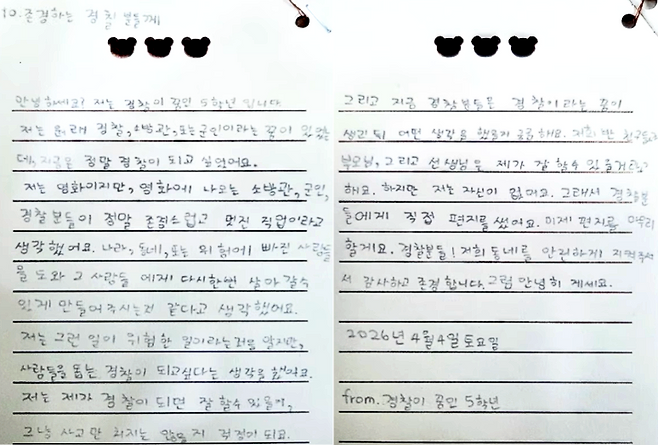 10. 존경하는 경찰분들께
안녕하세요? 저는 경찰이 꿈인 5학년 입니다
저는 원래 경찰, 소방관, 또는 군인이라는 꿈이 있었는
데, 지금은 정말 경찰이 되고 싶었어요.
저는 영화이지만, 영화에 나오는 소방관, 군인,
경찰분들이 정말 존경스럽고 멋진 직업이라고
생각했어요. 나라, 동네, 또는 위험에 빠진 사람들
을 도와 그 사람들 에게 다시한번 살아갈수
있게 만들어주시는것 같다고 생각했어요.
저는 그런 일이 위험한 일이라는것을 알지만,
사람들을 돕는 경찰이 되고싶다는 생각을 했어요.
저는 제가 경찰이 되면 잘 할수 있을지,
그냥 사고만 치지는 않을지 걱정이 되요.
그리고 지금 경찰분들은 경찰이라는 꿈이
생긴 뒤 어떤 생각을 했을지 궁금해요. 저희 반 친구들과
부모님, 그리고 선생님은 제가 잘 할수 있을거라고
해요. 하지만 저는 자신이 없어요. 그래서 경찰분
들에게 직접 편지를 썼어요. 이제 편지를 마무리
할게요. 경찰분들! 저희 동네를 안전하게 지켜주셔
서 감사하고 존경합니다. 그럼 안녕히 계세요.
2026년 4월 4일 토요일
from. 경찰이 꿈인 5학년